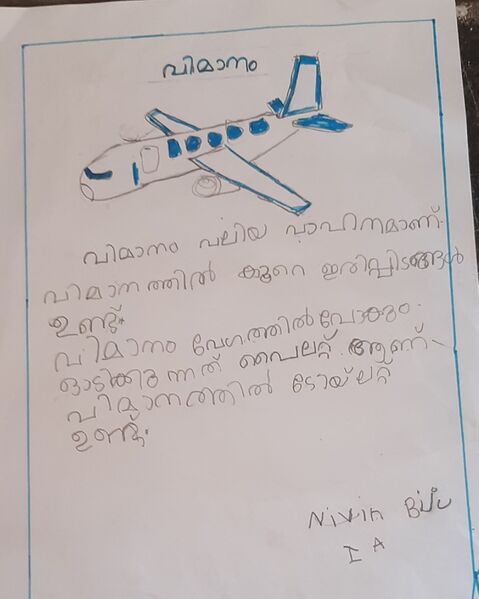 വിമാനം
വിമാനം വലിയ വാഹനമാണ്.
വിമാനത്തിൽ കുറെ ഇരിപ്പിടങ്ങൾ
ഉണ്ട്.
വിമാനം വേഗത്തിൽ പോകും.
ഓടിക്കുന്നത് പൈലറ്റ് ആണ്
വിമാനത്തിൽ ടോയ്ലറ്റ്
ഉണ്ട്.
Nivin
I A